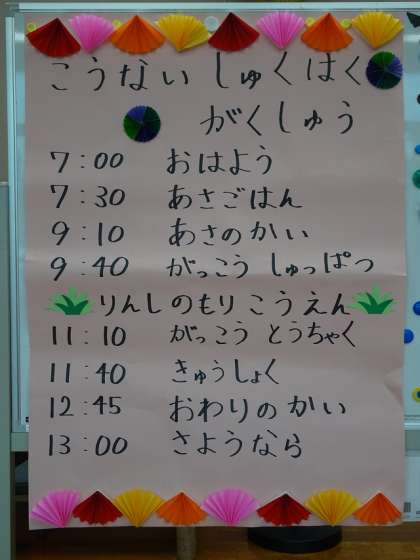 こうない しゅくはく
がくしゅう
7:00 おはよう
7:30 あさごはん
9:10 あさのかい
9:40 がっこう しゅっぱつ
りんしのもり こうえん
11:10 がっこう とうちゃく
11:40 きゅうしょく
12:45 おわりのかい
13:00 さようなら